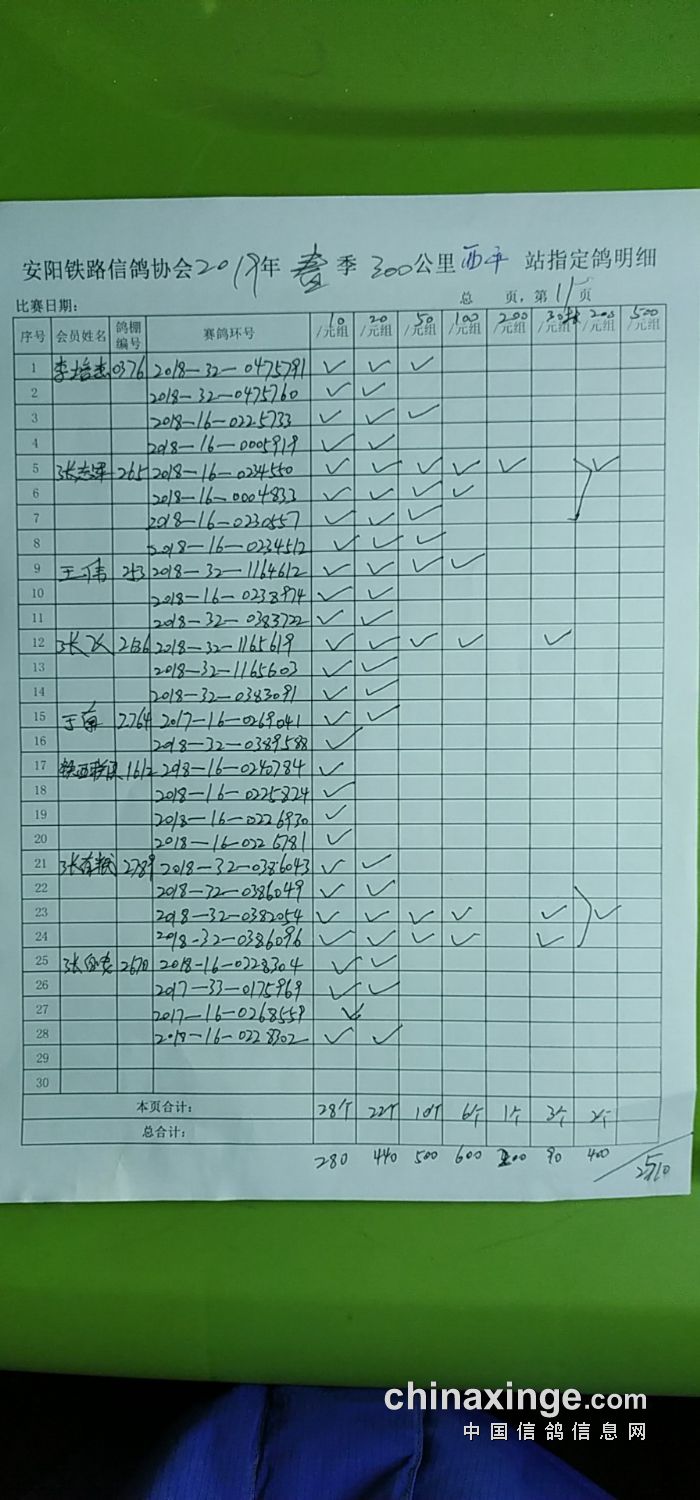 安阳铁路信鸽协会2019年 春 季 300公里 西平 站指定鸽明细
比赛日期: 总 页, 第11页
序号 会员姓名 鸽棚编号 赛鸽环号 10/元组 20/元组 50/元组 100/元组 200/元组 30/元组 200/元组 500/元组
1 0376 2018-32-0475791 ✓ ✓ ✓
2 2018-32-0475760 ✓ ✓
3 2018-16-0225733 ✓ ✓ ✓
4 2018-16-0005919 ✓ ✓
5 265 2018-16-0234550 ✓ ✓ ✓ ✓ ✓ ✓
6 2018-16-0004833 ✓ ✓ ✓ ✓
7 2018-16-0230557 ✓ ✓ ✓
8 2018-16-0234512 ✓ ✓ ✓
9 王伟 213 2018-32-1164612 ✓ ✓ ✓ ✓
10 2018-16-0238974 ✓ ✓
11 2018-32-0383722 ✓ ✓
12 张飞 2636 2018-32-1165619 ✓ ✓ ✓ ✓ ✓
13 2018-32-1165603 ✓ ✓
14 2018-32-0383091 ✓ ✓
15 2764 2017-16-0269041 ✓ ✓
16 2018-32-0389588 ✓
17 1612 2018-16-0240784 ✓
18 2018-16-0225824 ✓
19 2018-16-0226930 ✓
20 2018-16-0226781 ✓
21 2789 2018-32-0386043 ✓ ✓
22 2018-32-0386049 ✓ ✓
23 2018-32-0382054 ✓ ✓ ✓ ✓ ✓ ✓
24 2018-32-0386096 ✓ ✓ ✓ ✓ ✓
25 2670 2018-16-0228304 ✓ ✓
26 2017-33-0175969 ✓ ✓
27 2017-16-0268559 ✓
28 2018-16-0228302 ✓ ✓
29
30
本页合计: 28个 22个 10个 6个 1个 3个 2个
总合计:
280 440 500 600 200 90 400 2510
chinaxinge.com
中国信鸽信息网